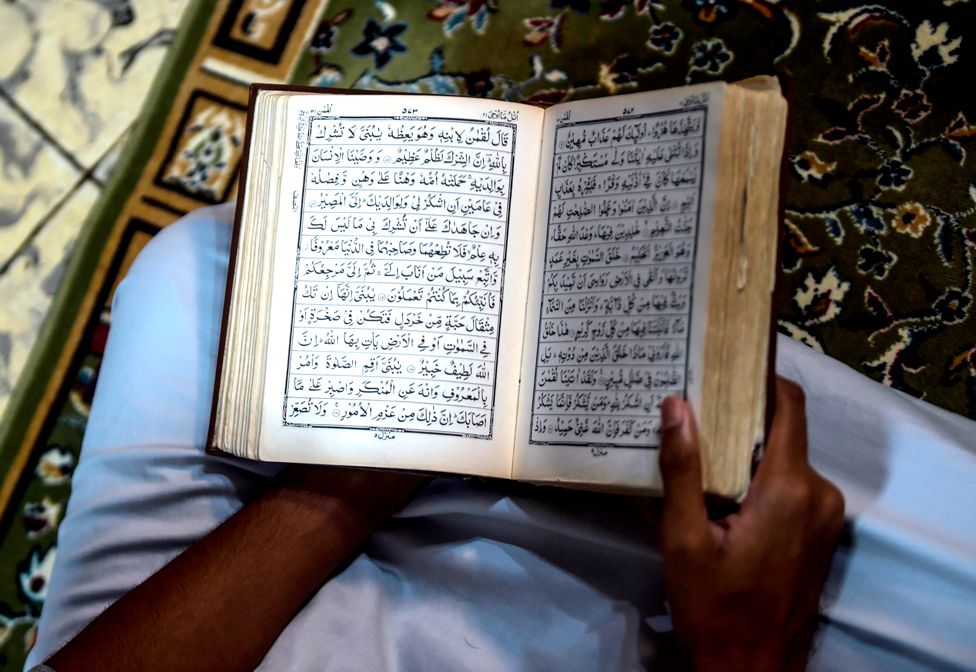 لُقْمٰن
٥٧٢
وَّيَتَّخِذَهَا هُزُوًا ؕ اُولٰٓئِكَ لَهُمْ عَذَابٌ مُّهِيْنٌ ۝
وَاِذَا تُتْلٰى عَلَيْهِ اٰيٰتُنَا وَلّٰى مُسْتَكْبِرًا كَاَنْ لَّمْ
يَسْمَعْهَا كَاَنَّ فِيْٓ اُذُنَيْهِ وَقْرًا ۚ فَبَشِّرْهُ بِعَذَابٍ
اَلِيْمٍ ۝ اِنَّ الَّذِيْنَ اٰمَنُوْا وَعَمِلُوا الصّٰلِحٰتِ لَهُمْ
جَنّٰتُ النَّعِيْمِ ۝ خٰلِدِيْنَ فِيْهَا ؕ وَعْدَ اللّٰهِ حَقًّا ؕ
وَهُوَ الْعَزِيْزُ الْحَكِيْمُ ۝ خَلَقَ السَّمٰوٰتِ بِغَيْرِ عَمَدٍ
تَرَوْنَهَا وَاَلْقٰى فِى الْاَرْضِ رَوَاسِيَ اَنْ تَمِيْدَ بِكُمْ
وَبَثَّ فِيْهَا مِنْ كُلِّ دَآبَّةٍ ؕ وَاَنْزَلْنَا مِنَ السَّمَآءِ
مَآءً فَاَنْۢبَتْنَا فِيْهَا مِنْ كُلِّ زَوْجٍ كَرِيْمٍ ۝ هٰذَا خَلْقُ
اللّٰهِ فَاَرُوْنِيْ مَاذَا خَلَقَ الَّذِيْنَ مِنْ دُوْنِهٖ ؕ بَلِ
الظّٰلِمُوْنَ فِيْ ضَلٰلٍ مُّبِيْنٍ ۝ وَلَقَدْ اٰتَيْنَا لُقْمٰنَ
اَنِ اشْكُرْ لِلّٰهِ ؕ وَمَنْ يَّشْكُرْ فَاِنَّمَا يَشْكُرُ
وَمَنْ كَفَرَ فَاِنَّ اللّٰهَ غَنِيٌّ حَمِيْدٌ ۝ وَاِذْ
منزل ٥
اُتْلُ مَآ اُوْحِيَ ٢١
٥٧٣
لُقْمٰن ٣١
قَالَ لُقْمٰنُ لِابْنِهٖ وَهُوَ يَعِظُهٗ يٰبُنَيَّ لَا تُشْرِكْ
بِاللّٰهِ ؔؕ اِنَّ الشِّرْكَ لَظُلْمٌ عَظِيْمٌ ۝ وَوَصَّيْنَا الْاِنْسَانَ
بِوَالِدَيْهِ ۚ حَمَلَتْهُ اُمُّهٗ وَهْنًا عَلٰى وَهْنٍ وَّفِصٰلُهٗ
فِيْ عَامَيْنِ اَنِ اشْكُرْ لِيْ وَلِوَالِدَيْكَ ؕ اِلَيَّ الْمَصِيْرُ ۝
وَاِنْ جَاهَدٰكَ عَلٰٓى اَنْ تُشْرِكَ بِيْ مَا لَيْسَ لَكَ
بِهٖ عِلْمٌ ۙ فَلَا تُطِعْهُمَا وَصَاحِبْهُمَا فِى الدُّنْيَا مَعْرُوْفًا ؗ
وَّاتَّبِعْ سَبِيْلَ مَنْ اَنَابَ اِلَيَّ ۚ ثُمَّ اِلَيَّ مَرْجِعُكُمْ
فَاُنَبِّئُكُمْ بِمَا كُنْتُمْ تَعْمَلُوْنَ ۝ يٰبُنَيَّ اِنَّهَآ اِنْ تَكُ
مِثْقَالَ حَبَّةٍ مِّنْ خَرْدَلٍ فَتَكُنْ فِيْ صَخْرَةٍ اَوْ
فِى السَّمٰوٰتِ اَوْ فِى الْاَرْضِ يَاْتِ بِهَا اللّٰهُ ؕ اِنَّ
اللّٰهَ لَطِيْفٌ خَبِيْرٌ ۝ يٰبُنَيَّ اَقِمِ الصَّلٰوةَ وَاْمُرْ
بِالْمَعْرُوْفِ وَانْهَ عَنِ الْمُنْكَرِ وَاصْبِرْ عَلٰى مَآ
اَصَابَكَ ؕ اِنَّ ذٰلِكَ مِنْ عَزْمِ الْاُمُوْرِ ۝ وَلَا تُصَعِّرْ
منزل ٥